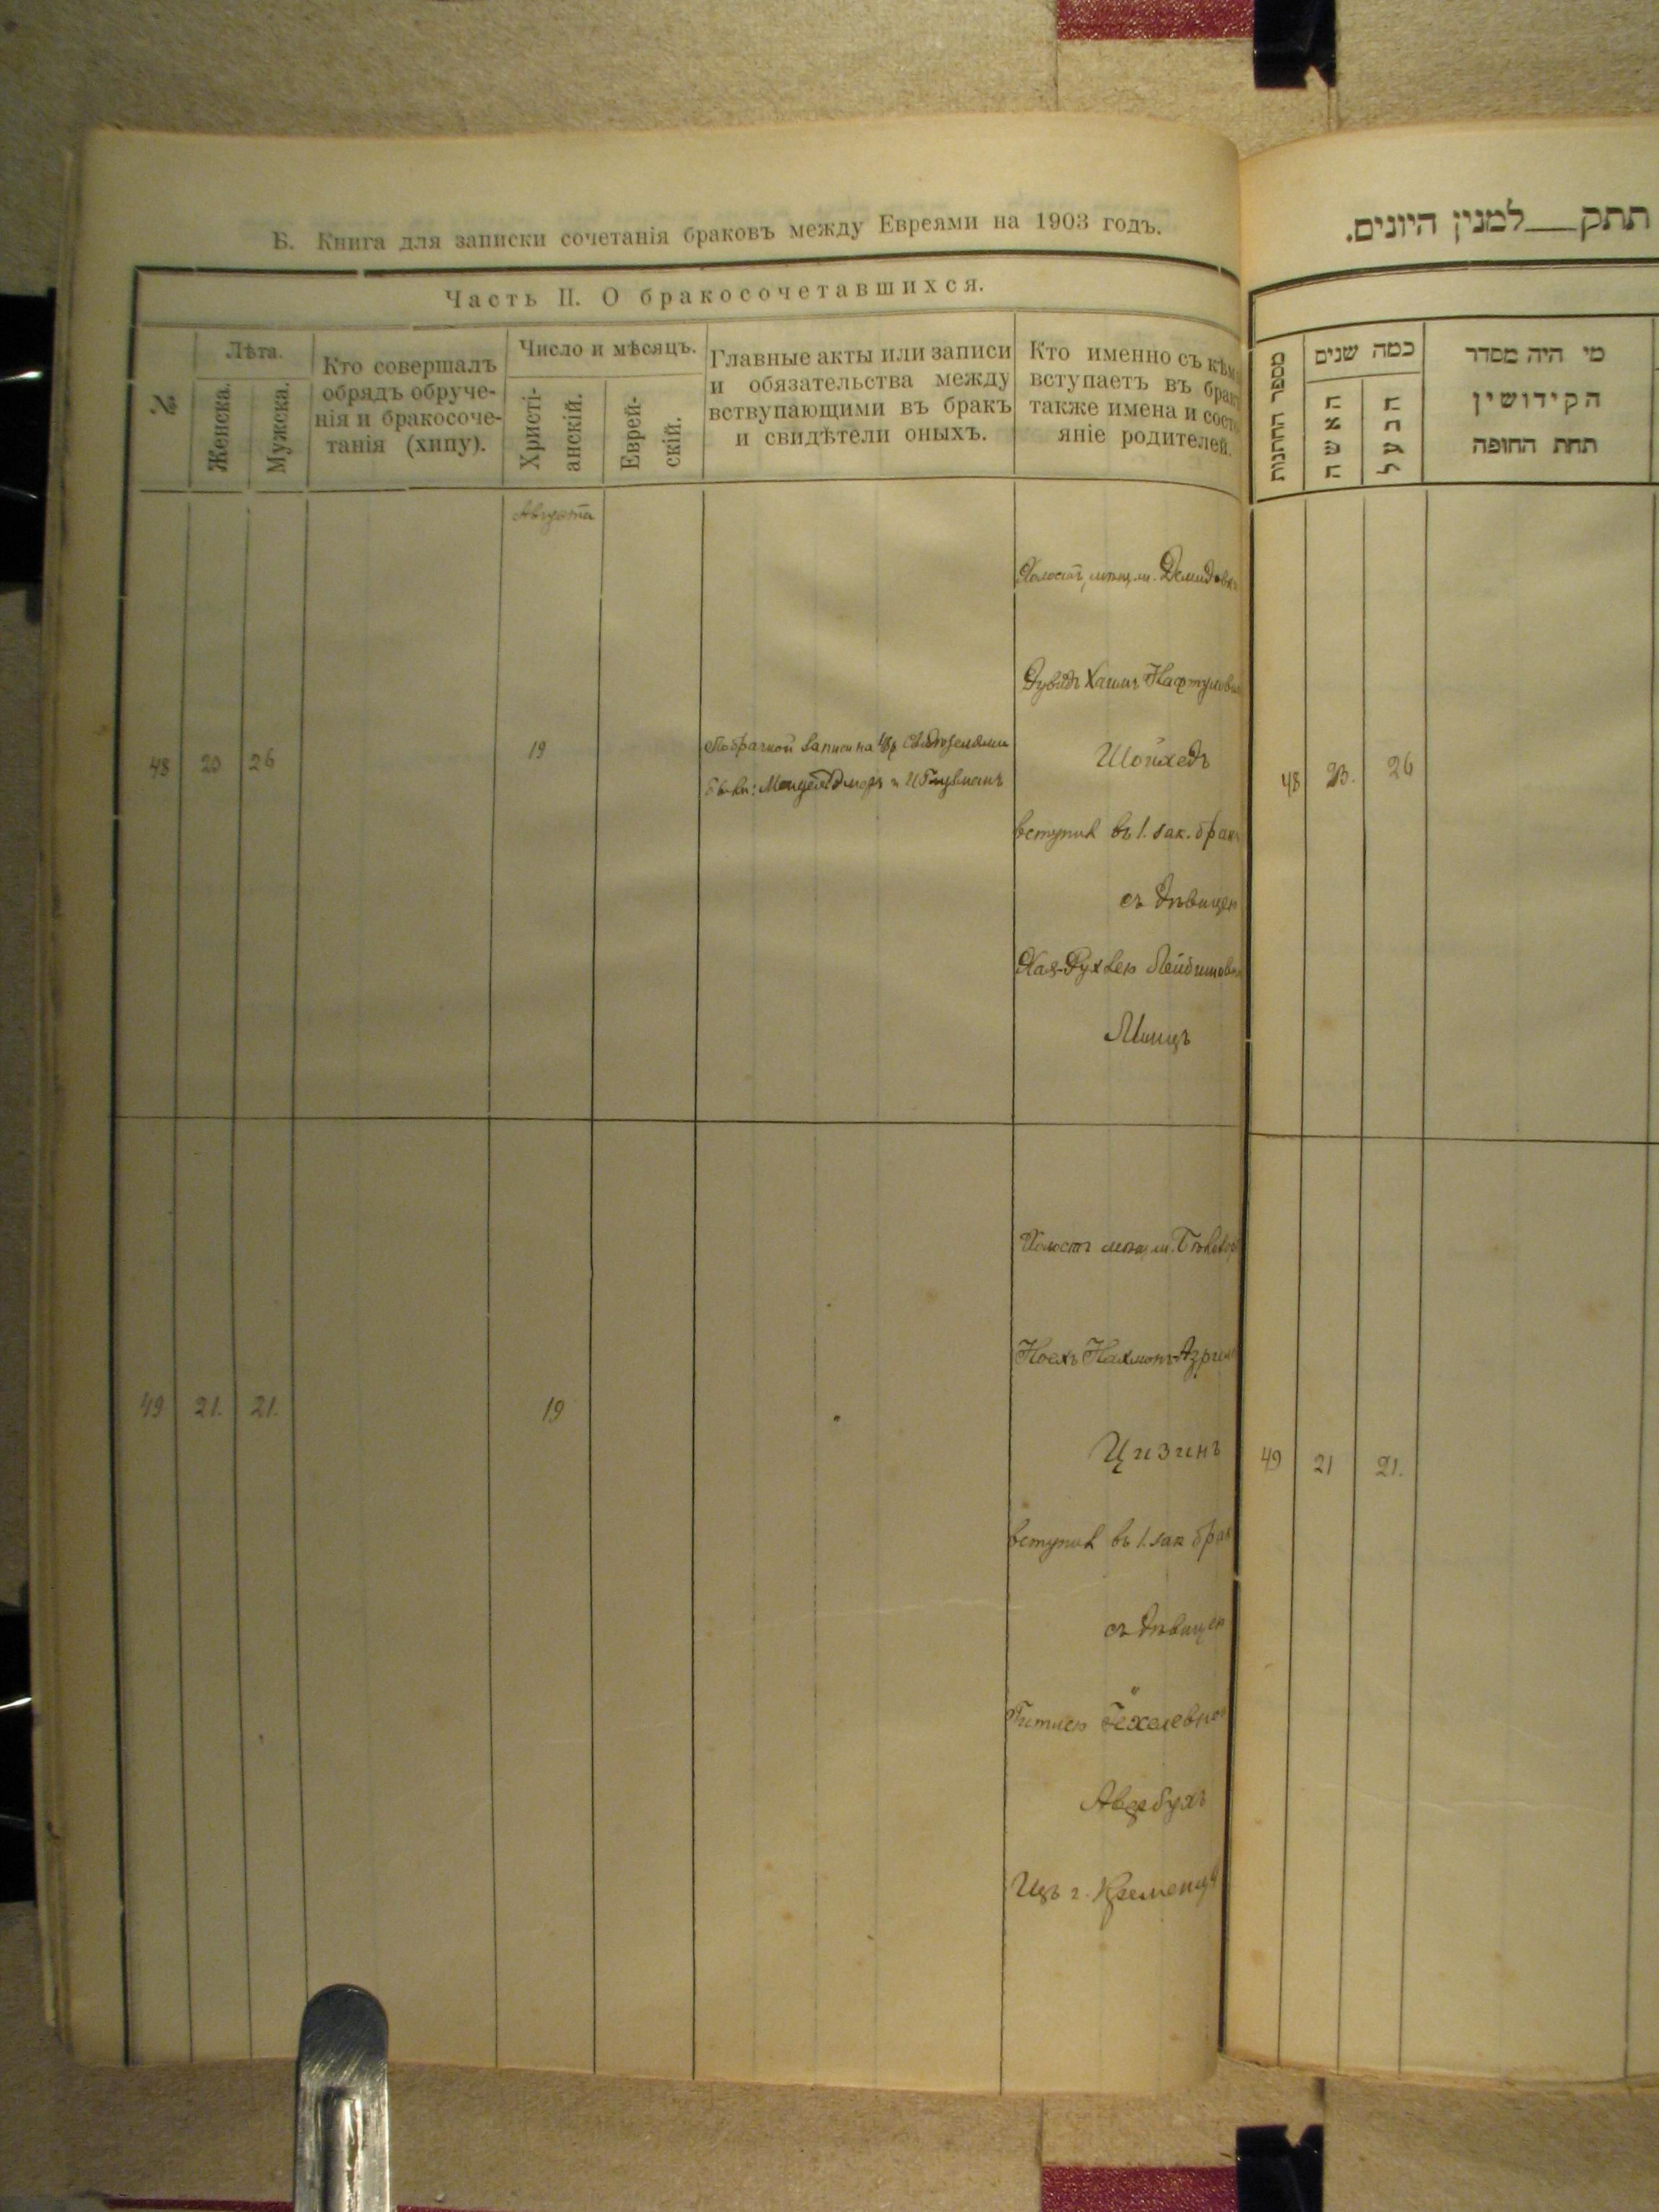 Б. Книга для записки сочетанія браковъ между Евреями на 1903 годъ.
Часть II. О бракосочетавшихся.
№
Лѣта.
Женска.
Мужска.
Кто совершалъ
обрядъ обруче-
нія и бракосоче-
танія (хипу).
Число и мѣсяцъ.
Христі-
анскій.
Еврей-
скій.
Главные акты или записи
и обязательства между
вствупающими въ бракъ
и свидѣтели оныхъ.
Кто именно съ кѣмъ
вступаетъ въ бракъ
также имена и состо
яніе родителей.
Августа
Холостъ, мѣщ. м. Демидовк
Дувидъ Хаимъ Нафтулов
48 23 26 19
Шойхедъ
вступил въ 1. зак. бракъ
съ дѣвицею
Хая-Рухлею Лейбишовн
Минцъ
Холостъ мѣщ. м.
Ноехъ Нахмонъ-Азрил
49 21. 21. 19 "
Цизинъ
вступил въ 1. зак брак
съ дѣвицею
Гитлею Іехелевно
Авербухъ
Изъ г. Кременца
תתק___למנין היונים.
מספר החתנות
כמה שנים
האשה
הבעל
מי היה מסדר
הקידושין
תחת החופה
48 23. 26
49 21 21.